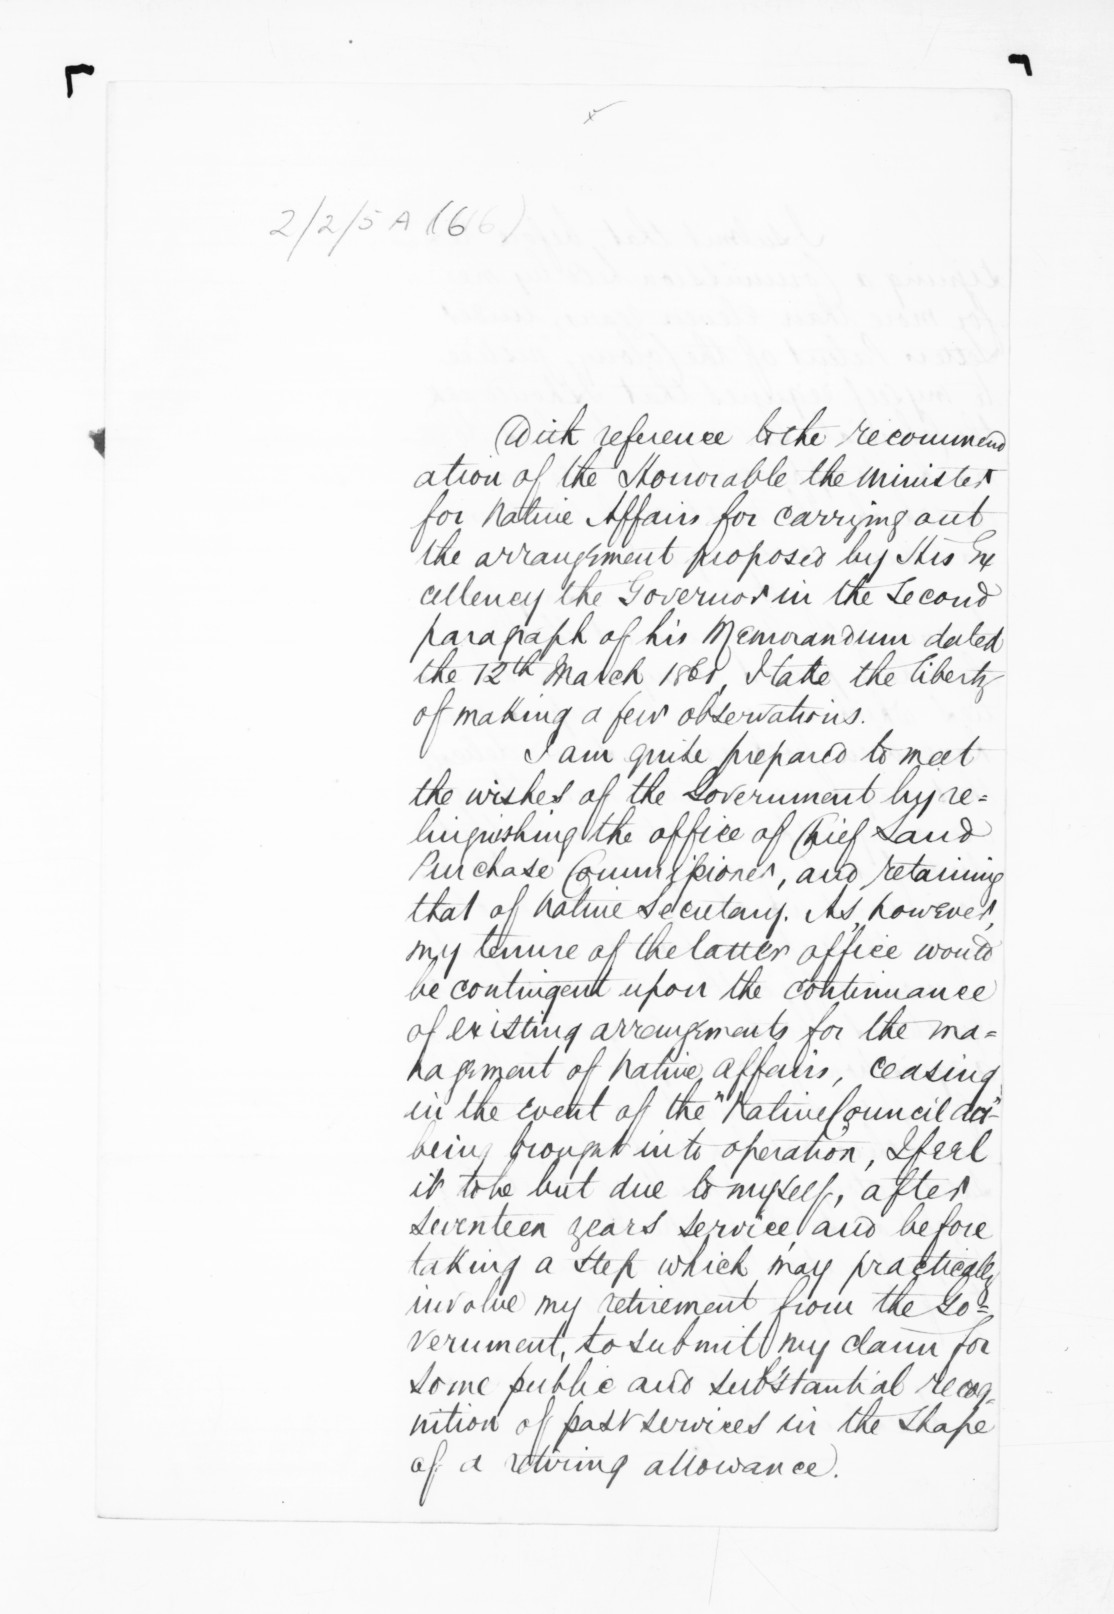 2/2/5 A (66)
With reference to the recommend
ation of the Honorable the Minister
for Native Affairs for carrying out
the arrangement proposed by His Ex
cellency the Governor in the Second
paragraph of his Memorandum dated
the 12th March 1861, I take the liberty
of making a few observations.
I am quite prepared to meet
the wishes of the Government by re=
linquishing the office of Chief Land
Purchase Commissioner, and retaining
that of Native Secretary. As, however,
my tenure of the latter office would
be contingent upon the continuance
of existing arrangements for the ma=
nagement of Native Affairs, ceasing
in the event of the "Native Council Act"
being brought into operation, I feel
it to be but due to myself, after
seventeen years service, and before
taking a step which may practically
involve my retirement from the Go=
vernment, to submit my claim for
some public and substantial recog-
nition of past services in the shape
of a retiring allowance.